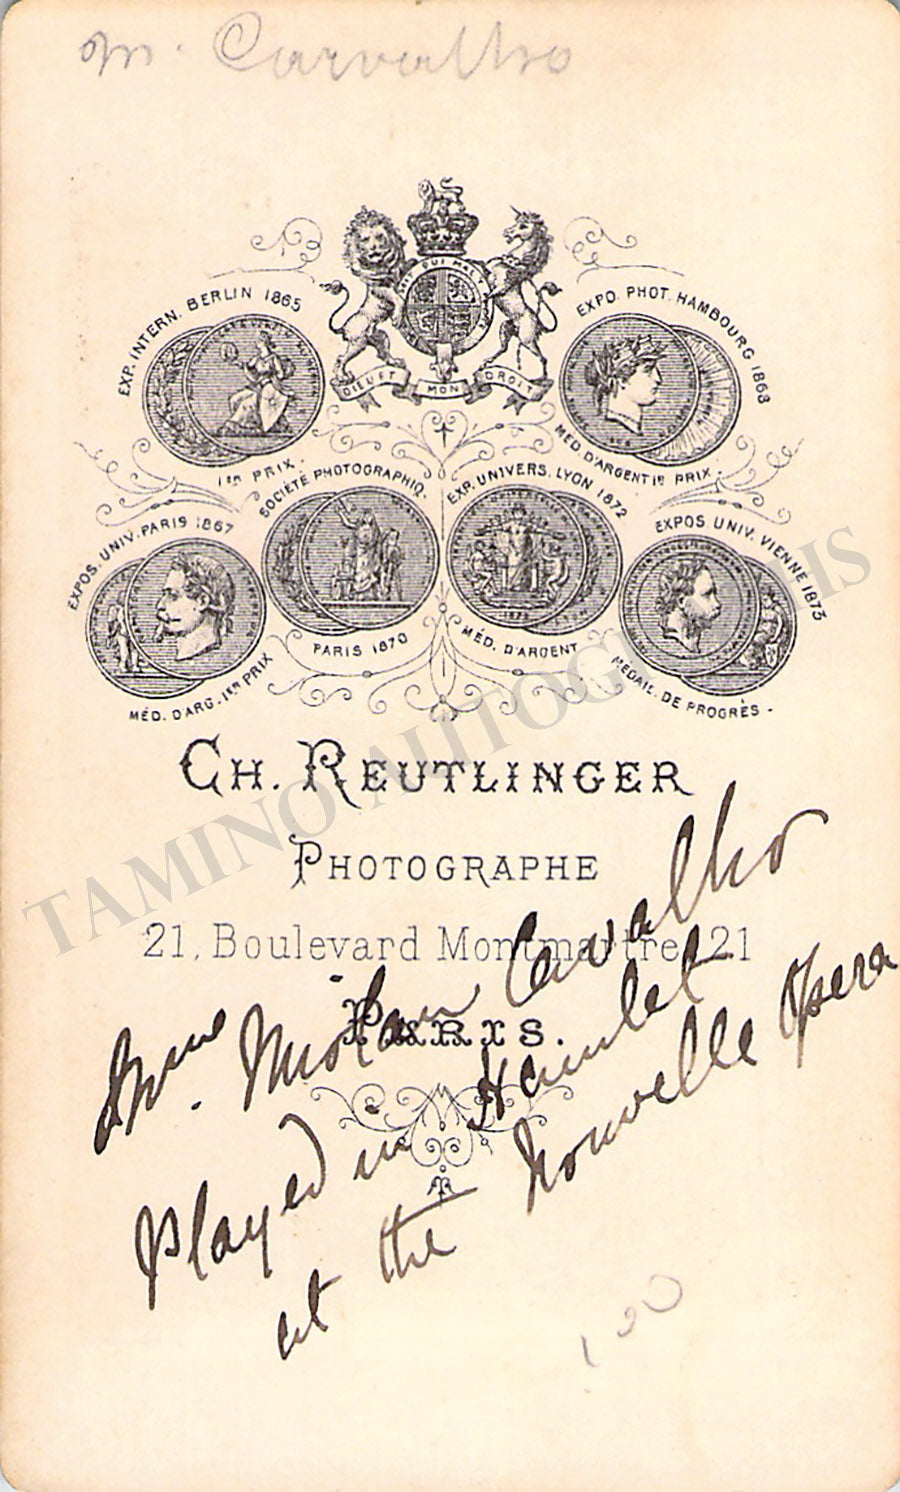 m. Carvalho
QUI MAL Y
DIEU ET MON DROIT
EXP. INTERN. BERLIN 1865
1er PRIX.
EXPO. PHOT. HAMBOURG 1868
MED. D'ARGENT 1e PRIX.
EXPOS. UNIV. PARIS 1867
MÉD. D'ARG. 1er PRIX
SOCIÉTÉ PHOTOGRAPHIQ.
PARIS 1870
EXP. UNIVERS. LYON 1872
MÉD. D'ARGENT
EXPOS. UNIV. VIENNE 1873
MEDAIL. DE PROGRÈS.
CH. REUTLINGER
PHOTOGRAPHE
21, Boulevard Montmartre, 21
PARIS.
Mme. Miolan Carvalho
Played in Hamlet
at the Nouvelle Opera
100
TAMINO AUTOGRAPHS